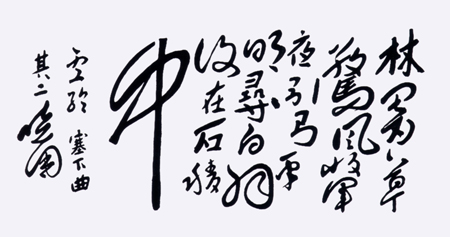 林暗草
驚風將軍
夜引弓平
明尋白羽
没在石棱
中
卢纶 塞下曲
其二